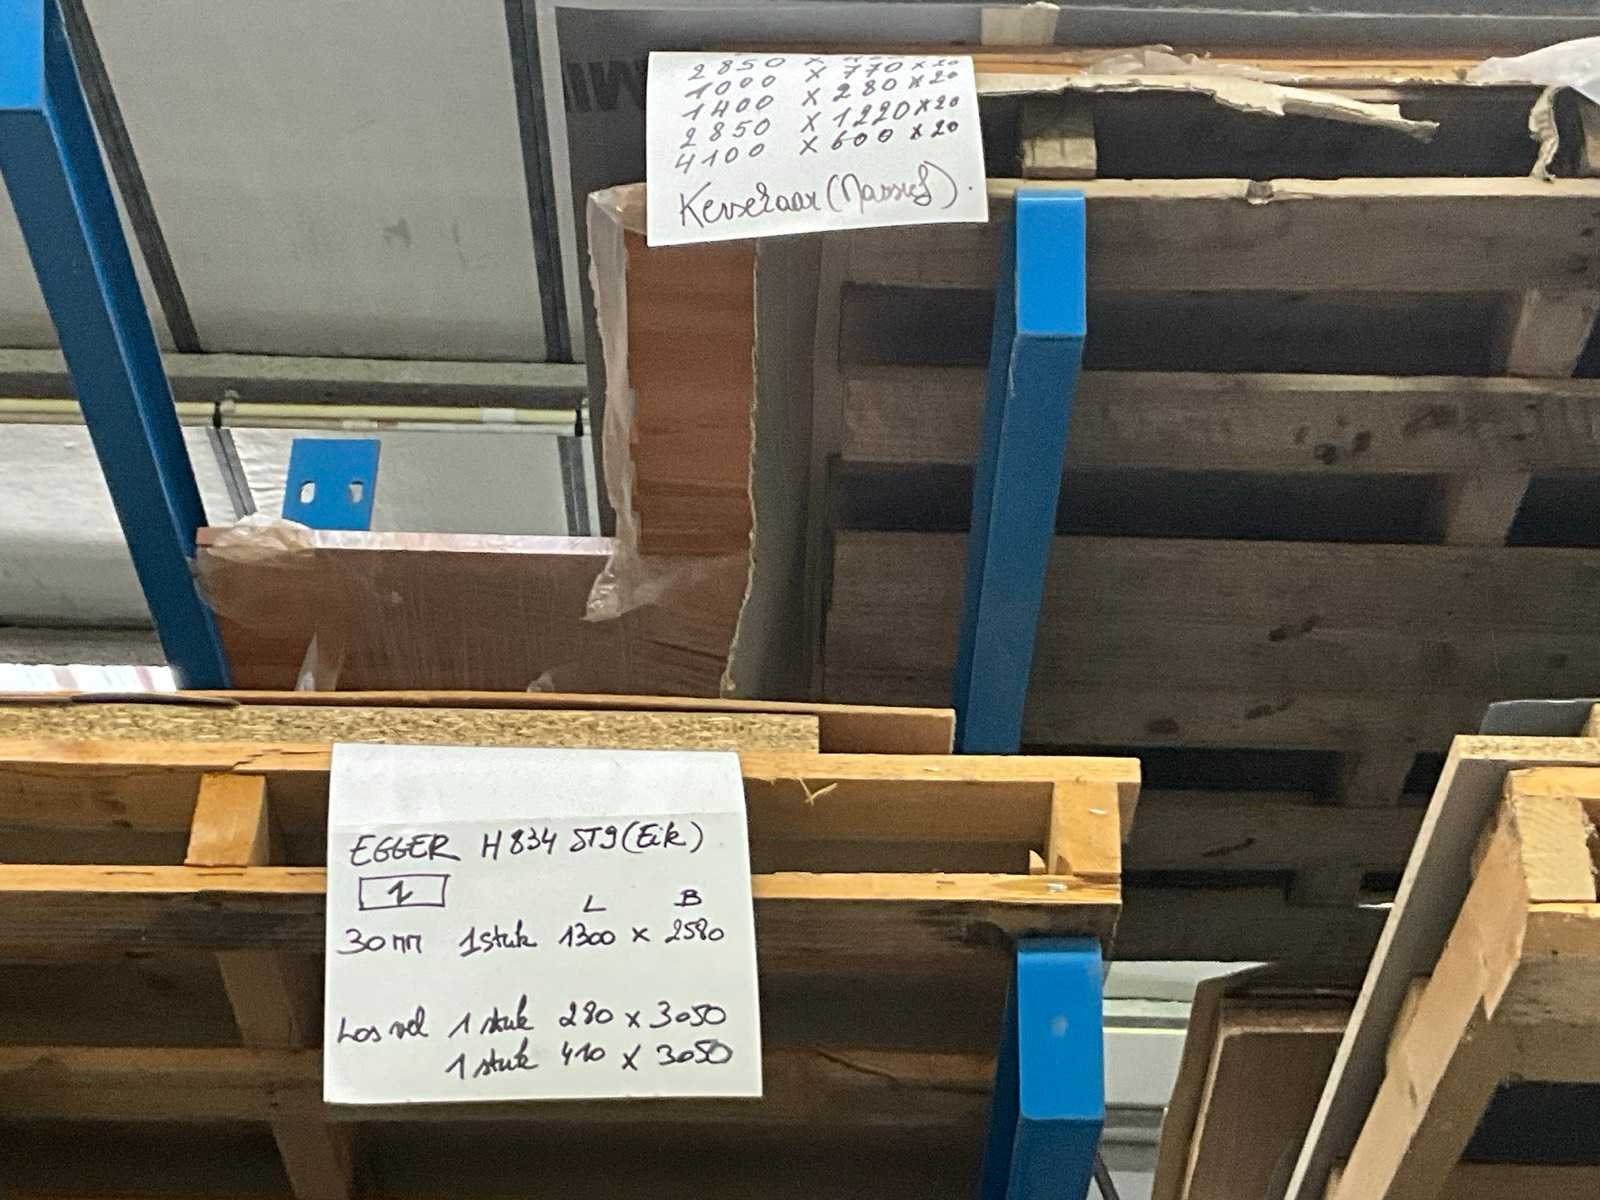 2850 x
1000 x 770 x 20
1400 x 280 x 20
2850 x 1220 x 20
4100 x 600 x 20
(Massief).
EGGER H834 ST9 (Eik)
1
L B
30mm 1 stuk 1300 x 2580
Los vel 1 stuk 280 x 3050
1 stuk 410 x 3050